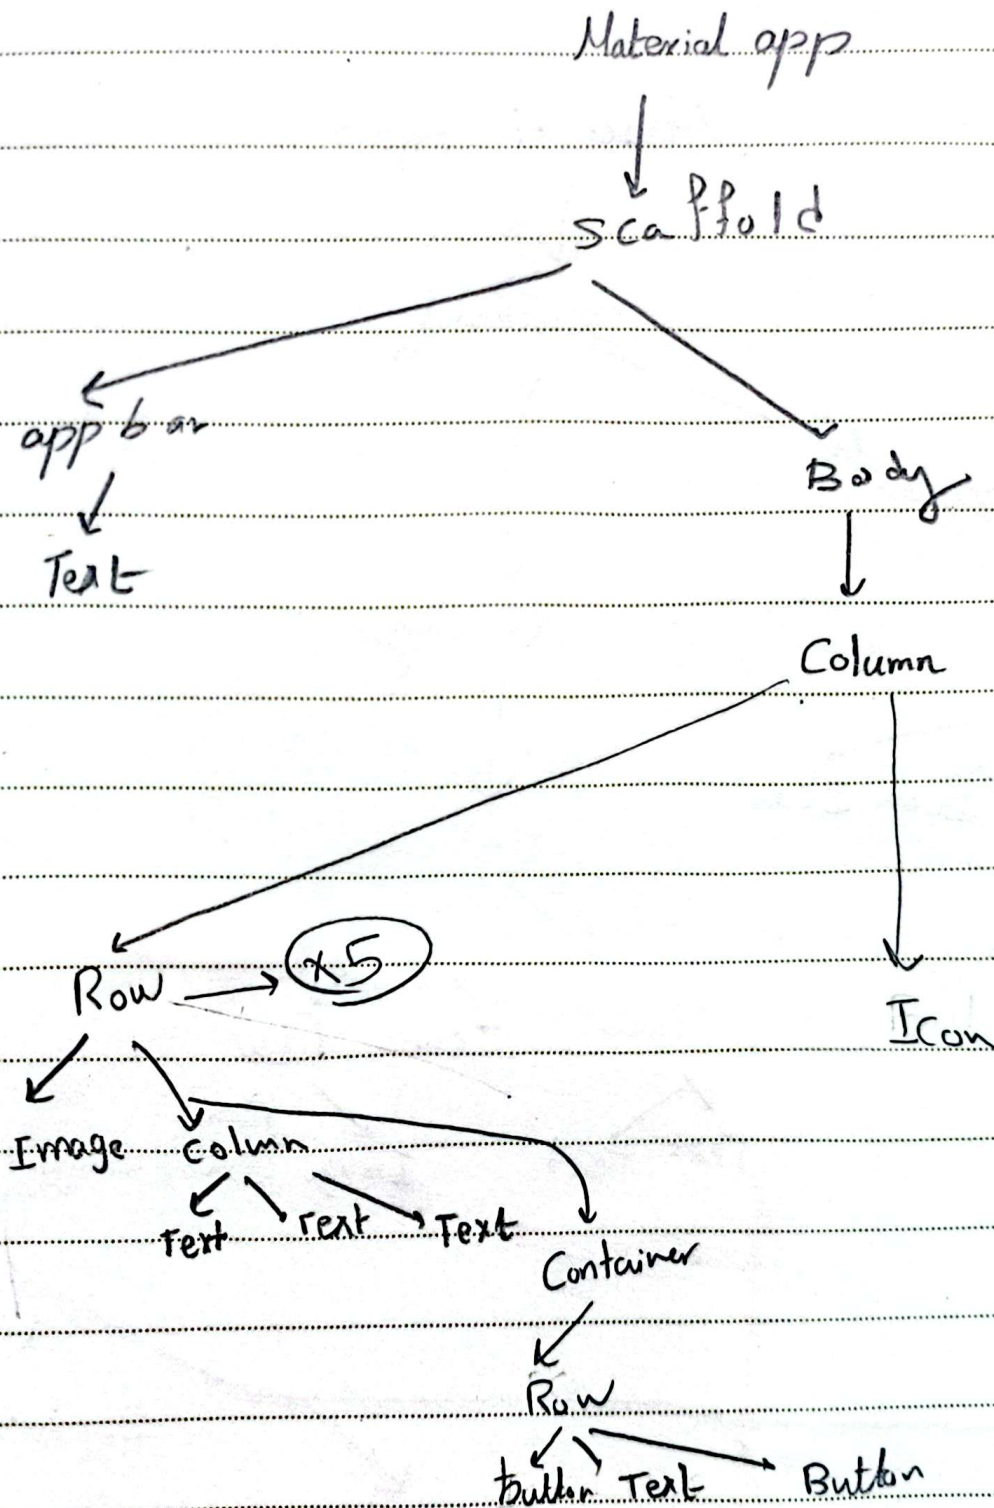 Material app
Scaffold
app bar
Body
Text
Column
Row
x5
Icon
Image
Column
Text
Text
Text
Container
Row
button
Text
Button